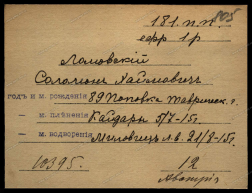 181.п.п. 105
ефр. 1р
Ломовскій
Соломон Хаймович
годъ и м. рожденія 89 Поповка Тавричск. г.
— м. плѣненія Кайдары 5/7-15г.
— м. водворенія Миловиц л.в. 21/8-15г.
10395. 12
Австрія